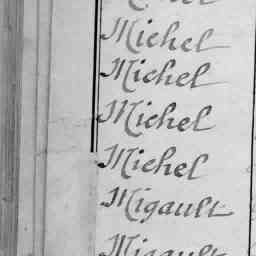 Michel
Michel
Michel
Michel
Migault
Migault